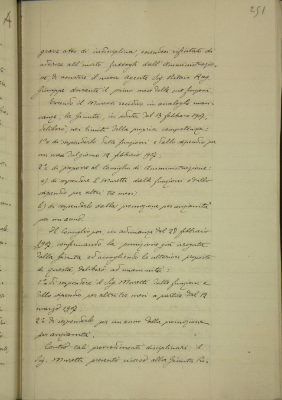 251
grave atto di indisciplina, essendosi rifiutato di
aderire all'invito fattogli dall'Amministrazio-
ne di assistere il nuovo agente Sig.
Giuseppe durante il primo mese delle sue funzioni.
Essendo il Moretti recidivo in analoghe man-
canze, la Giunta, in seduta del 13 febbraio 1917,
deliberò, nei limiti della propria competenza:
1° di sospenderlo dalle funzioni e dallo stipendio per
un mese dal giorno 12 febbraio 1917.
2° di proporre al Consiglio di Amministrazione:
a) di sospendere il Moretti dalle funzioni e dallo
stipendio per altri tre mesi;
b) di sospenderlo dalla promozione per anzianità
per un anno.
Il Consiglio poi, in adunanza del 28 febbraio
1917, confermando la punizione già irrogata
dalla Giunta ed accogliendo le ulteriori proposte
di questa, deliberò ad unanimità:
1° di sospendere il Sig. Moretti dalle funzioni e
dallo stipendio per altri tre mesi a partire dal 12
marzo 1917
2° di sospenderlo per un anno dalla promozione
per anzianità.
Contro tali provvedimenti disciplinari il
Sig. Moretti presentò ricorso alla Giunta